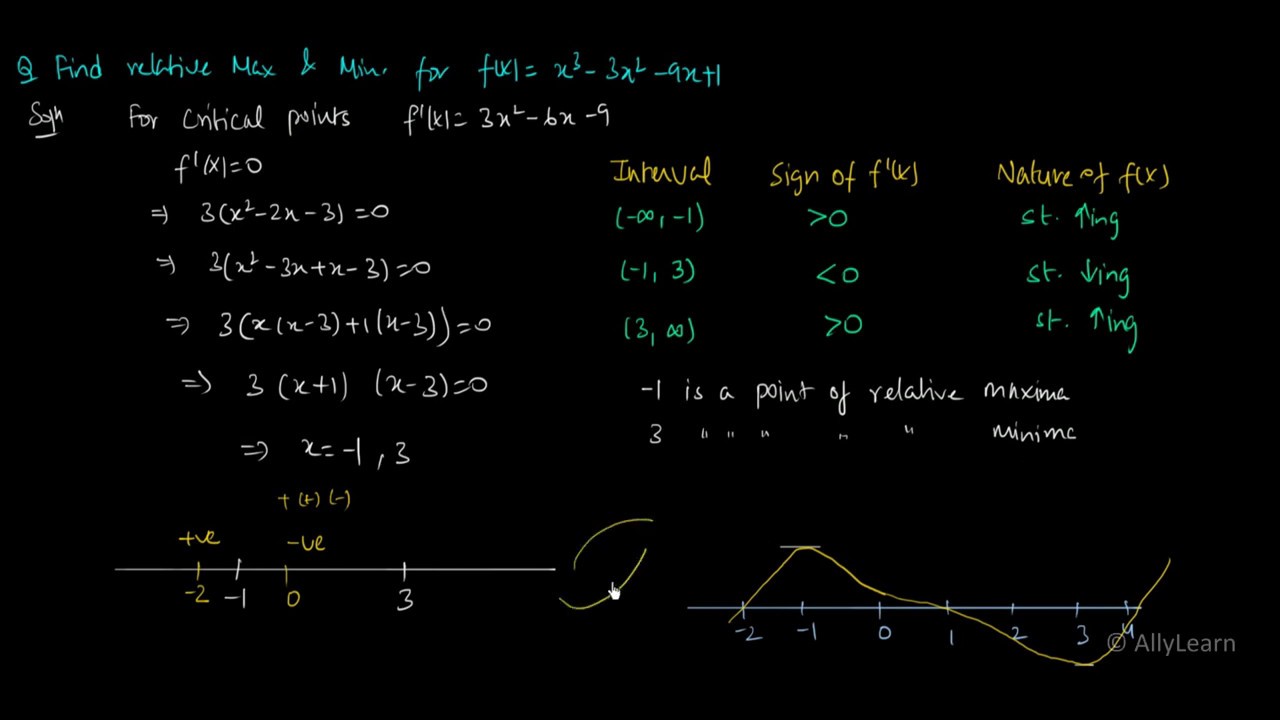 Q Find relative Max & Min. for f(x) = x³ - 3x² - 9x + 1
Soln For Critical points f'(x) = 3x² - 6x - 9
f'(x) = 0
⇒ 3(x² - 2x - 3) = 0
⇒ 3(x² - 3x + x - 3) = 0
⇒ 3(x(x-3) + 1(x-3)) = 0
⇒ 3 (x+1) (x-3) = 0
⇒ x = -1, 3
+ (+) (-)
+ve -ve
-2 -1 0 3
Interval Sign of f'(x) Nature of f(x)
(-∞, -1) >0 st. ↑ing
(-1, 3) <0 st. ↓ing
(3, ∞) >0 st. ↑ing
-1 is a point of relative maxima
3 " " " " " minima
-2 -1 0 1 2 3 4
© AllyLearn